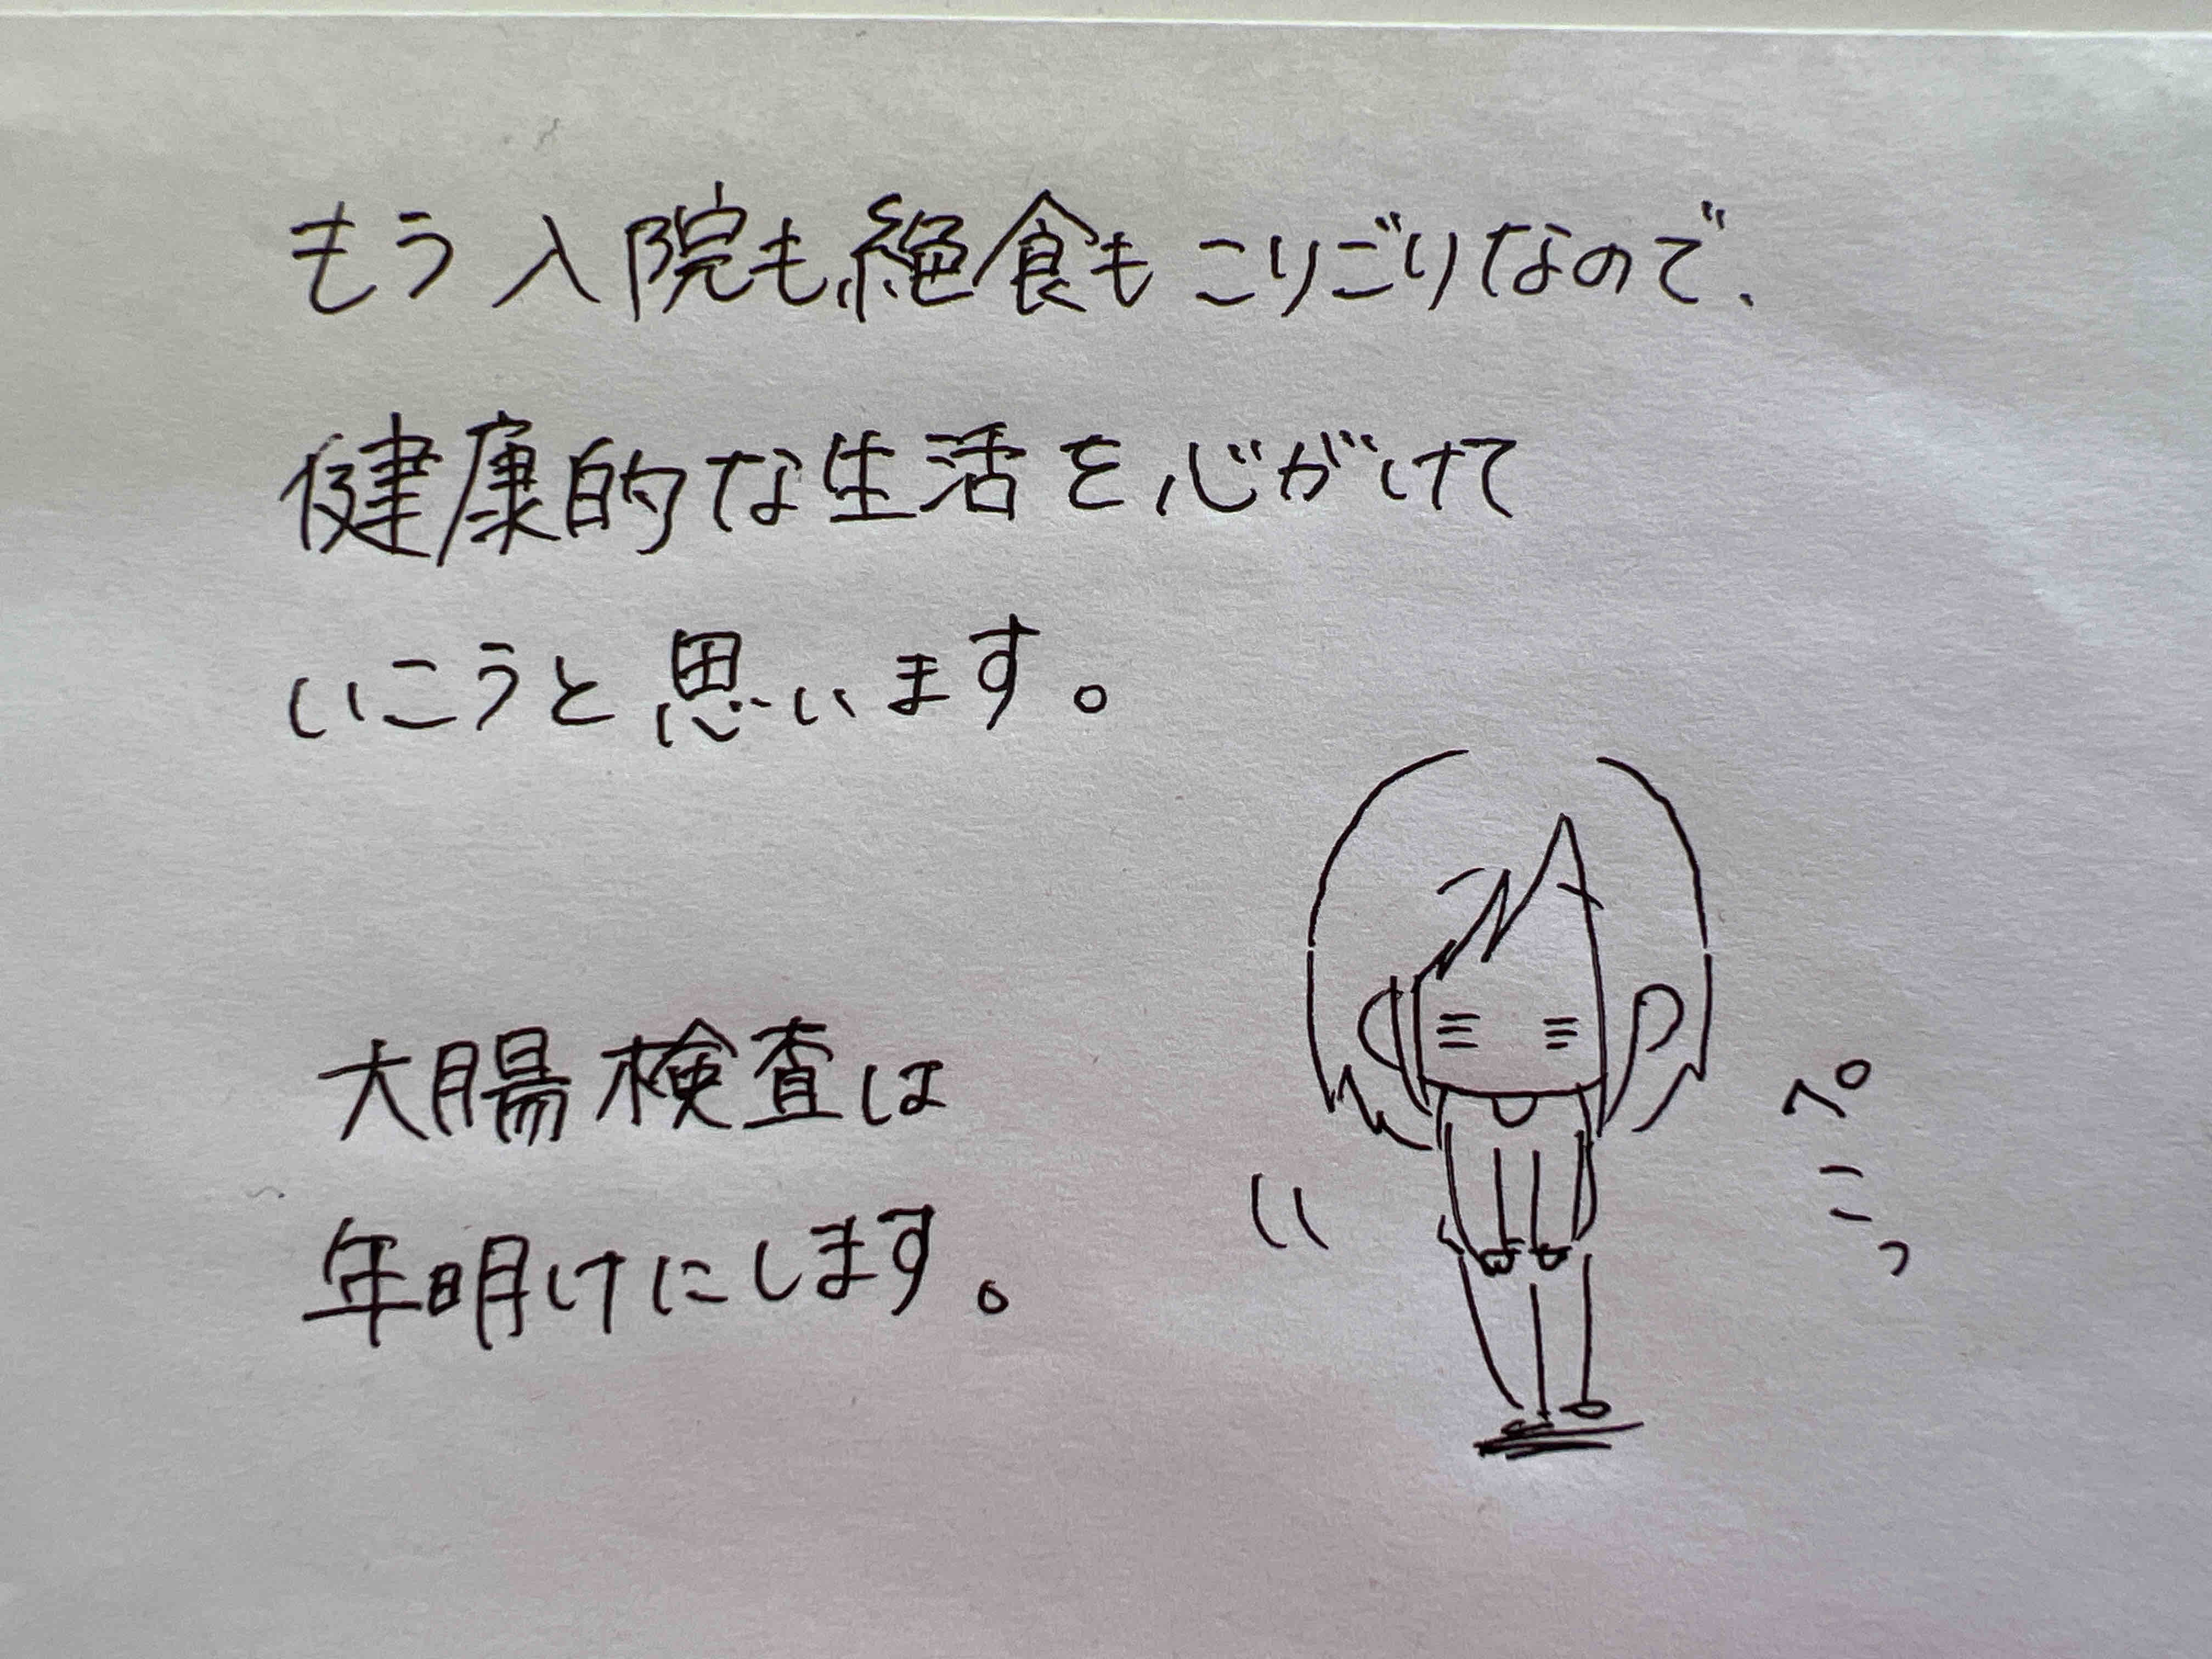 もう入院も絶食もこりごりなので、
健康的な生活を心がけて
いこうと思います。
大腸検査は
年明けにします。
ぺこっ